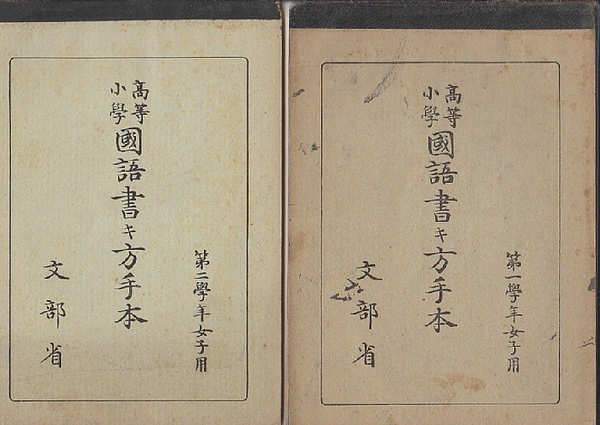 高等
小學
國語書キ方手本
第二學年女子用
文部省
高等
小學
國語書キ方手本
第一學年女子用
文部省